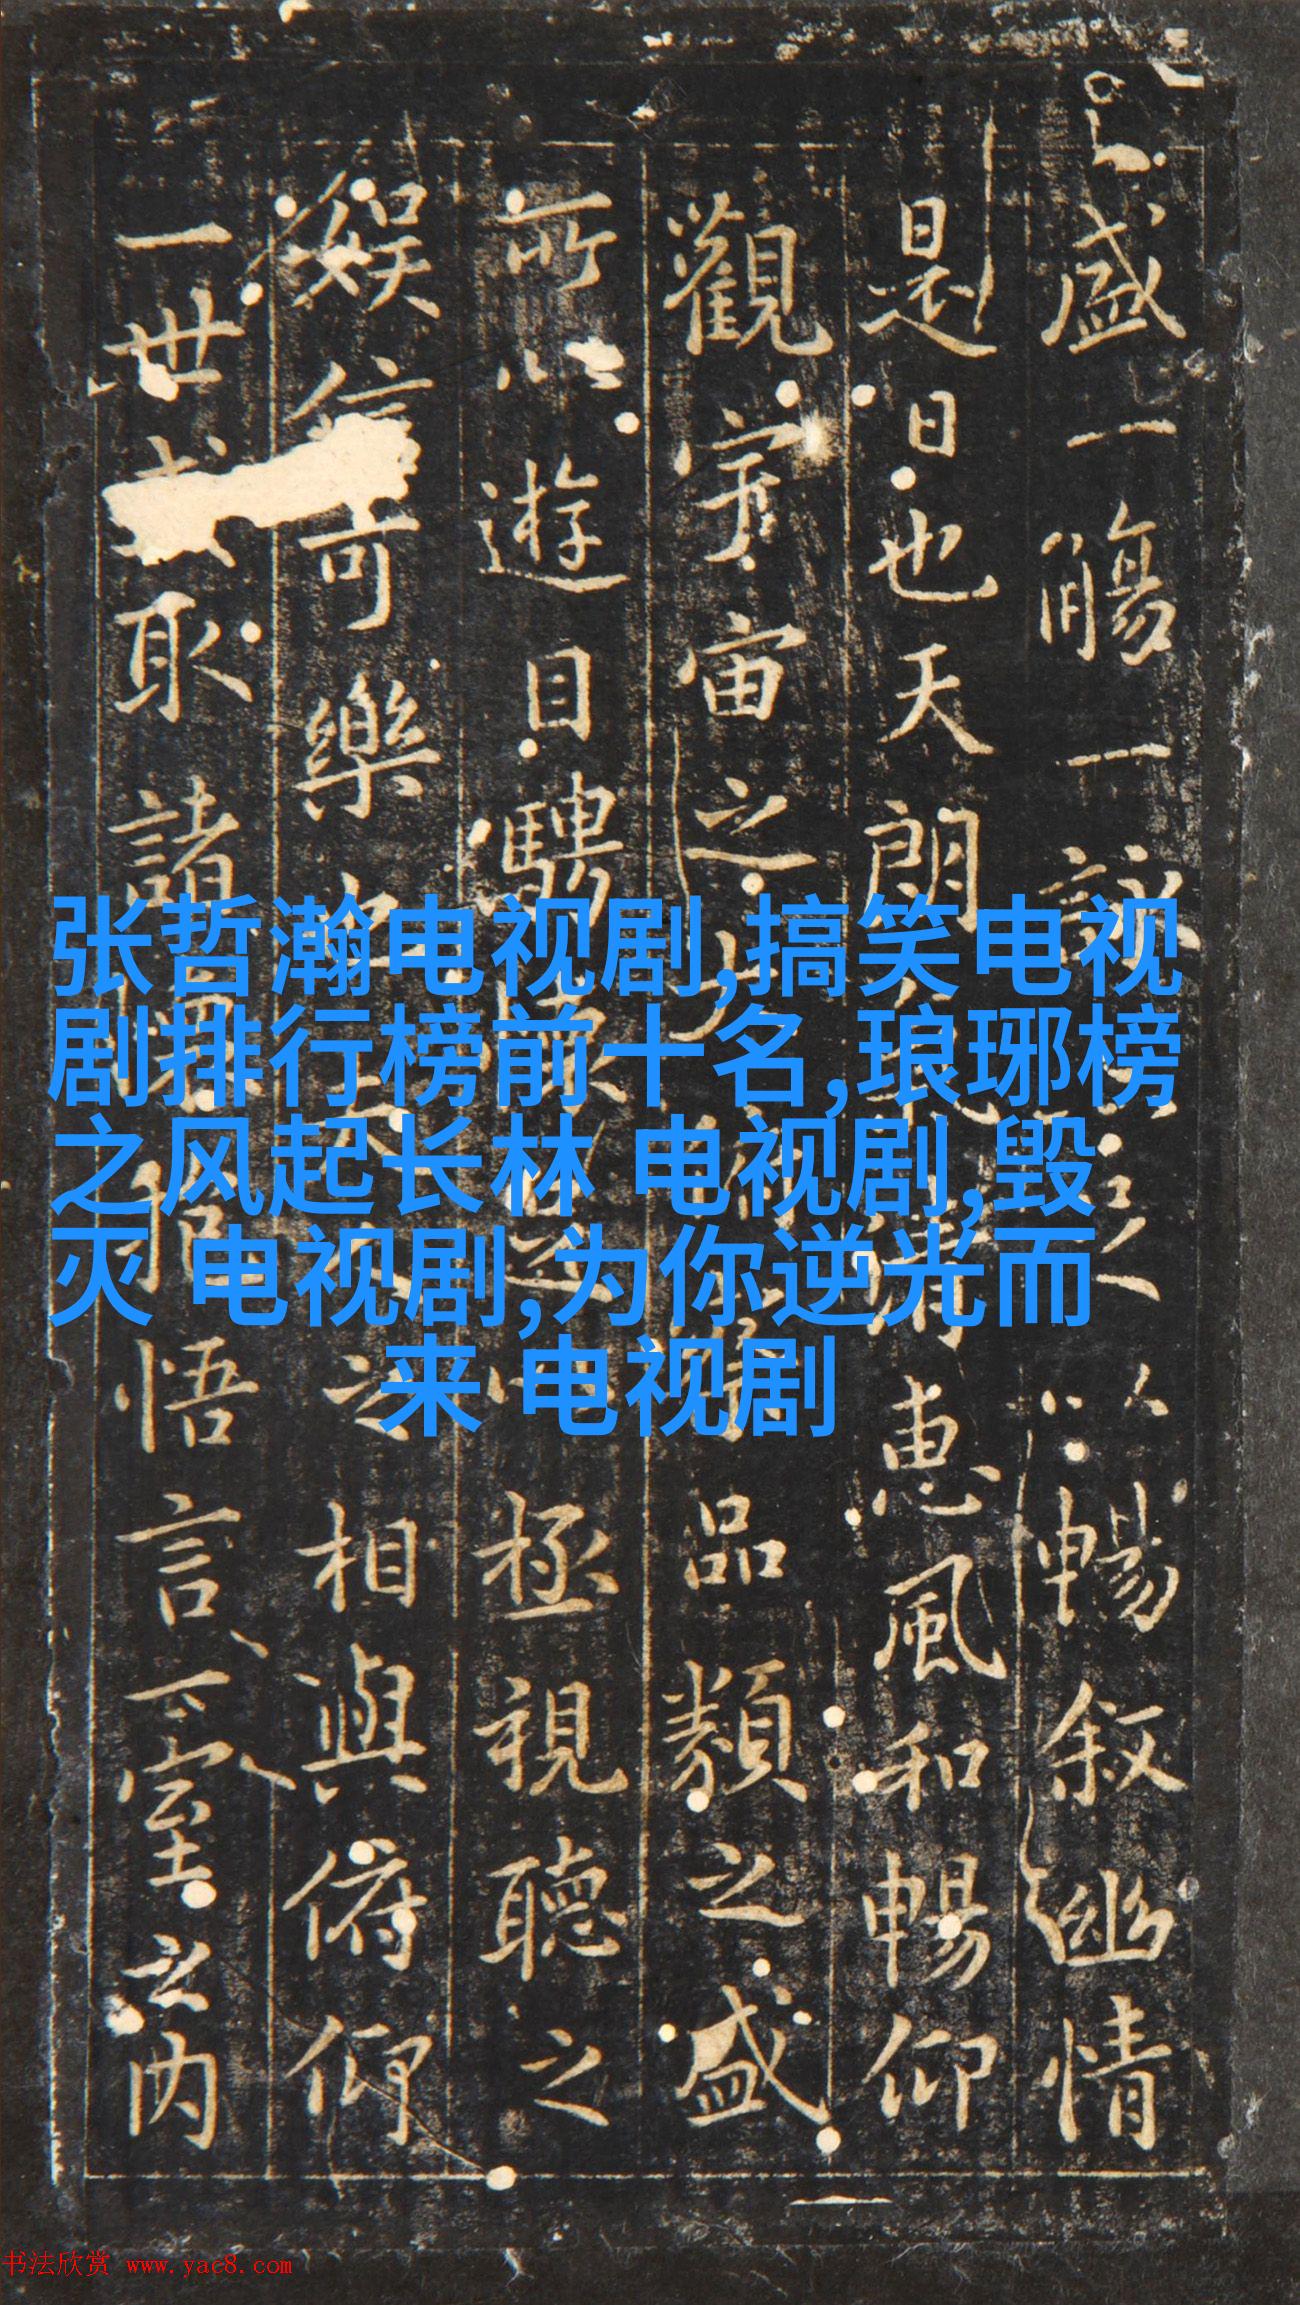 盛一觴一詠亦足以暢叙幽情
是日也天朗氣清惠風和暢仰
觀宇宙之大俯察品類之盛
所以遊目騁懷足以極視聽之
娱信可樂也夫人之相與俯仰
一世或取諸懷抱悟言一室之内
张哲瀚电视剧,搞笑电视
剧排行榜前十名,琅琊榜
之风起长林 电视剧,毁
灭 电视剧,为你逆光而
来 电视剧
书法欣赏 www.yac8.com